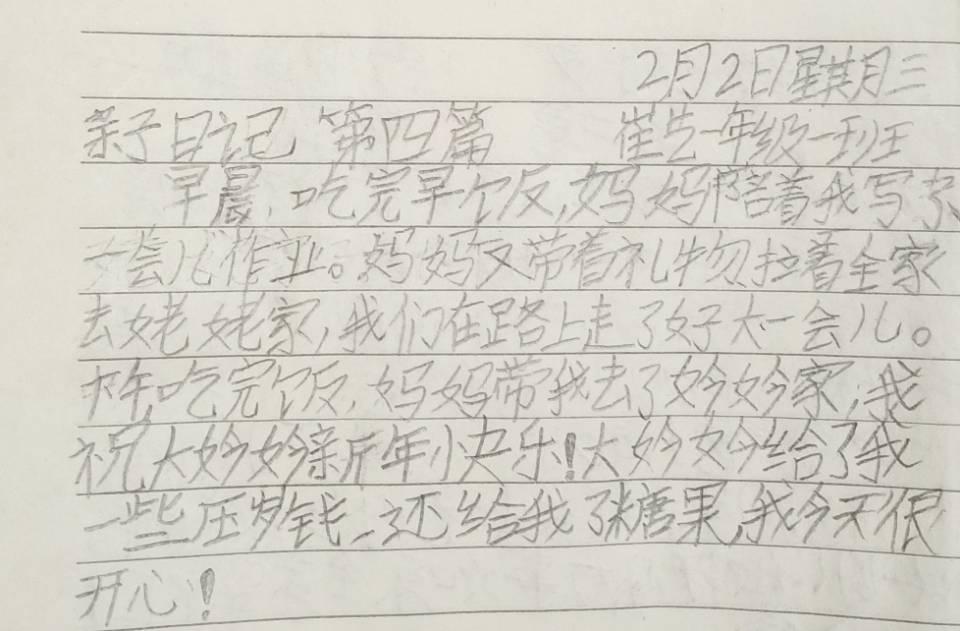 2月2日星期三
亲子日记 第四篇 崔艺一年级一班
早晨,吃完早饭,妈妈陪着我写了
一会儿作业。妈妈又带着礼物拉着全家
去姥姥家,我们在路上走了好大一会儿。
中午吃完饭,妈妈带我去了妗妗家,我
祝大妗妗新年快乐!大妗妗给了我
一些压岁钱,还给我了糖果,我今天很
开心!